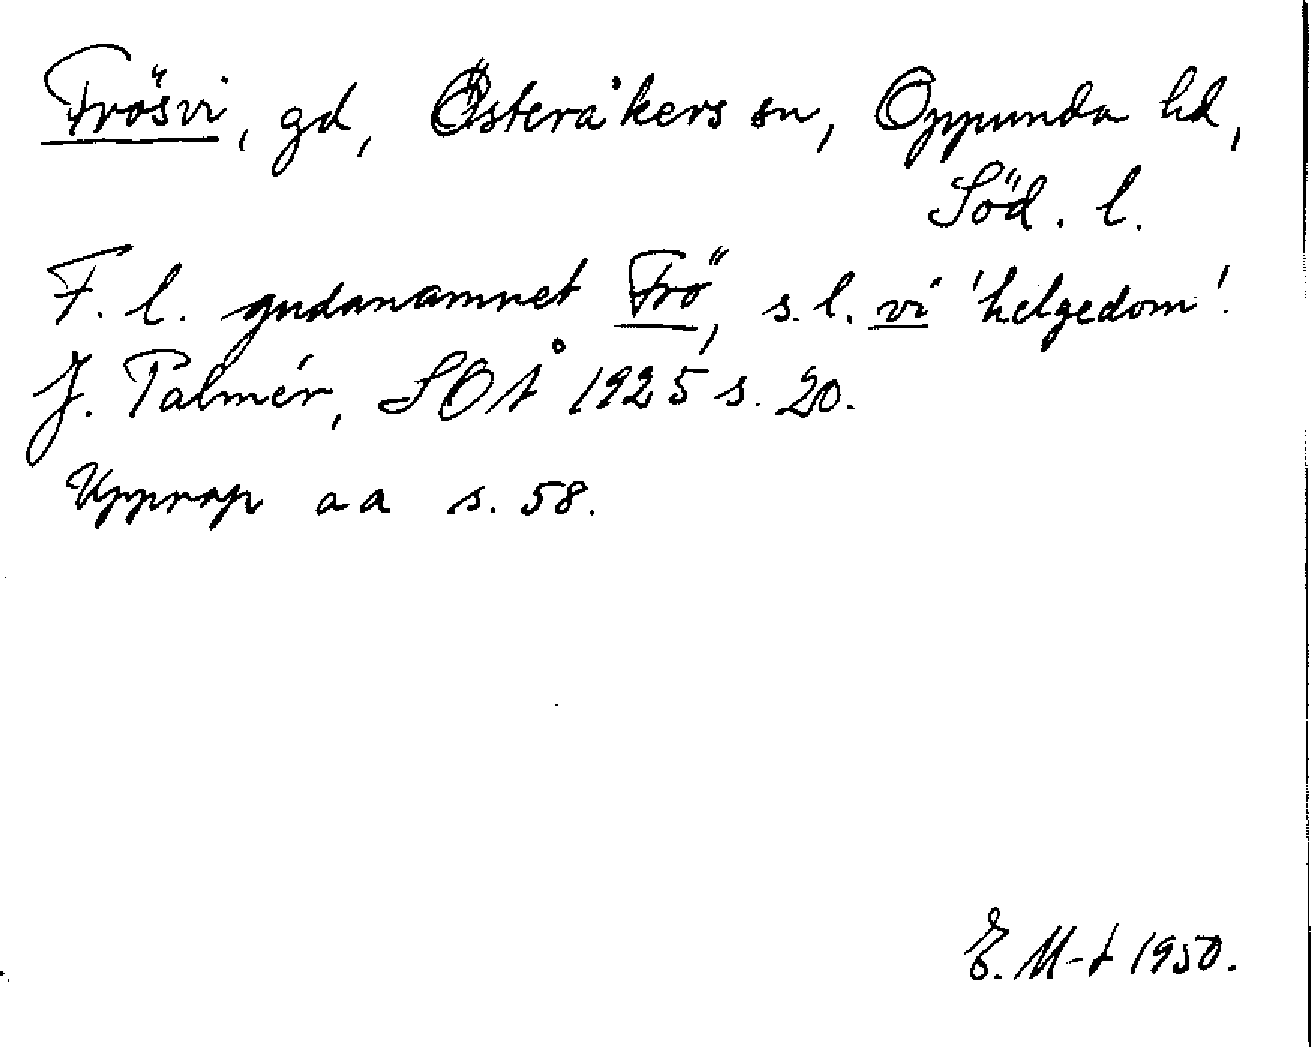 Frösvi, gd, Österåkers sn, Oppunda hd,
Söd. l.
F. l. gudanamnet Frö, s. l. vi 'helgedom'.
J. Palmér, SOÅ 1925 s. 20.
Upprep aa s. 58.
E. M-t 1950.